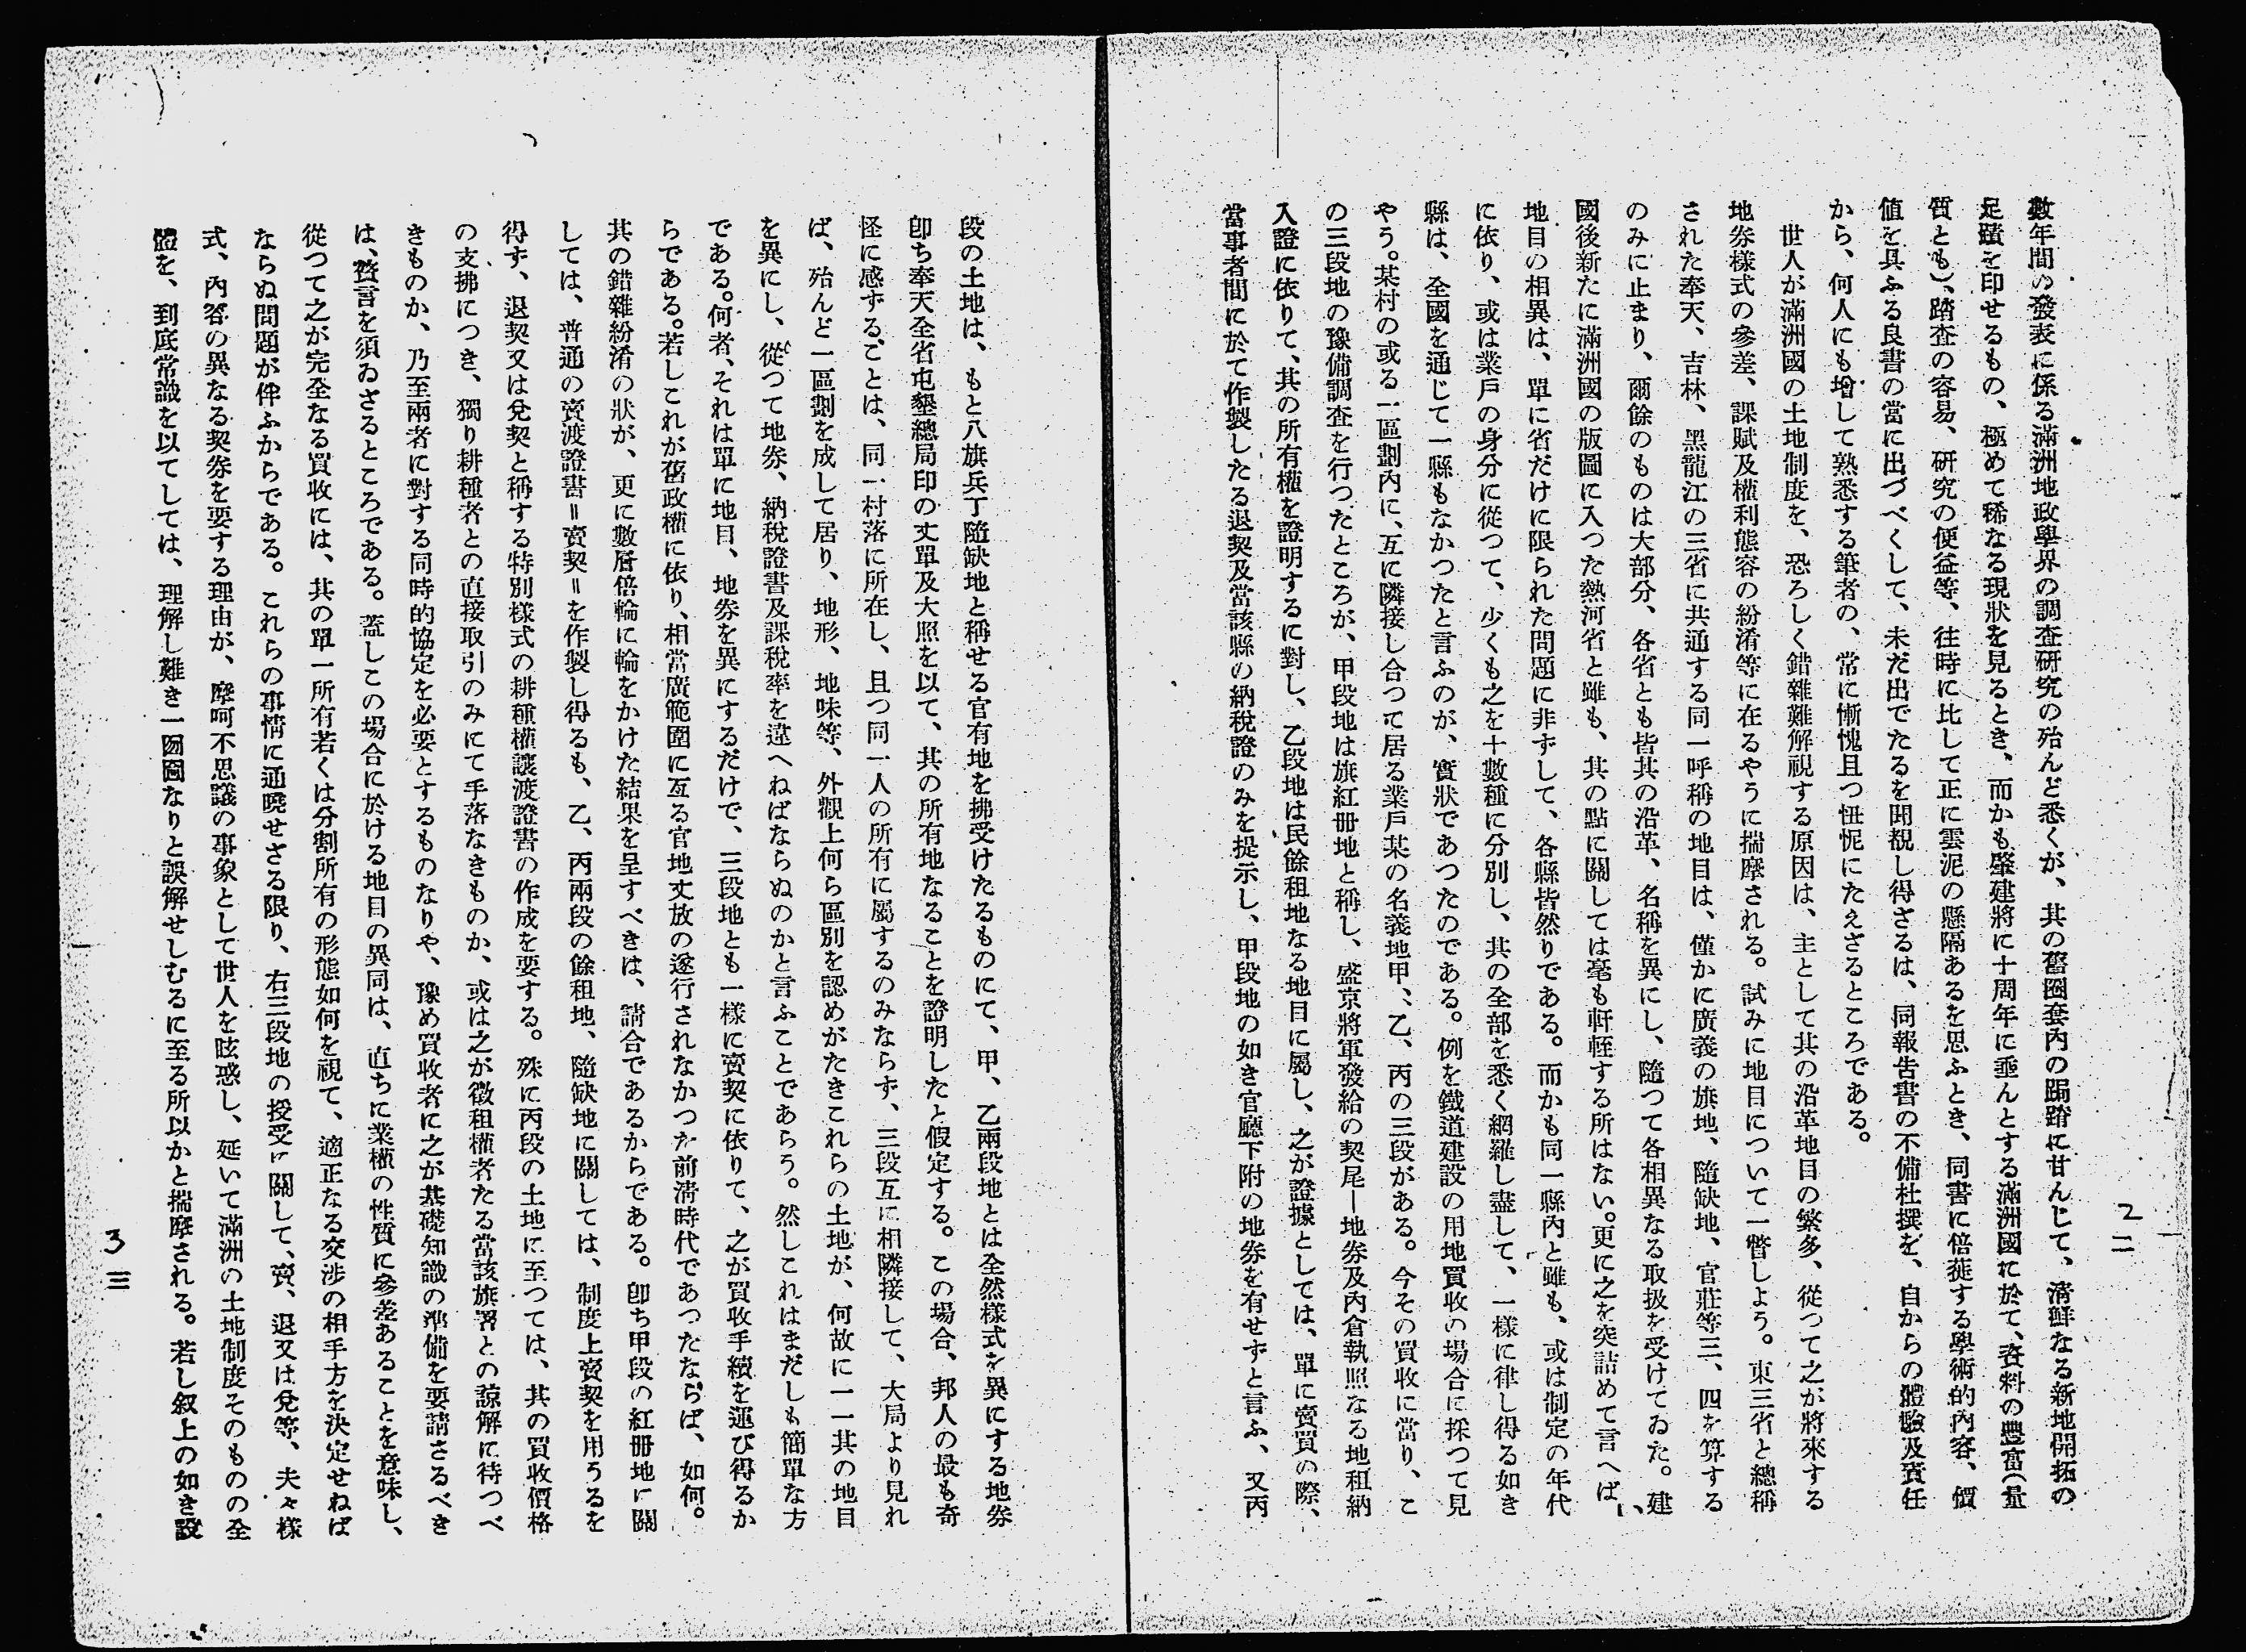 數年間の發表に係る滿洲地政學界の調査研究の殆んど悉くが、其の舊圈套內の跼蹐に甘んじて、淸鮮なる新地開拓の
足蹟を印せるもの、極めて稀なる現狀を見るとき、而かも肇建將に十周年に垂んとする滿洲國に於て、咨料の豊富(量
質とも)、踏査の容易、研究の便益等、往時に比して正に雲泥の懸隔あるを思ふとき、同書に倍蓰する學術的內容、價
値を具ふる良書の當に出づべくして、未だ出でたるを聞覩し得ざるは、同報吿書の不備杜撰を、自からの體驗及責任
から、何人にも增して熟悉する筆者の、常に慚愧且つ忸怩にたえざるところである。
世人が滿洲國の土地制度を、恐ろしく錯雜難解視する原因は、主として其の沿革地目の繁多、從つて之が將來する
地劵樣式の參差、課賦及權利態容の紛淆等に在るやうに揣摩される。試みに地目について一瞥しよう。東三省と總稱
された奉天、吉林、黑龍江の三省に共通する同一呼稱の地目は、僅かに廣義の旗地、隨缺地、官莊等三、四を算する
のみに止まり、爾餘のものは大部分、各省とも皆其の沿革、名稱を異にし、隨つて各相異なる取扱を受けてゐた。建
國後新たに滿洲國の版圖に入つた熱河省と雖も、其の點に關しては毫も軒輊する所はない。更に之を突詰めて言へば、
地目の相異は、單に省だけに限られた問題に非ずして、各縣皆然りである。而かも同一縣內と雖も、或は制定の年代
に依り、或は業戶の身分に從つて、少くも之を十數種に分別し、其の全部を悉く網羅し盡して、一樣に律し得る如き
縣は、全國を通じて一縣もなかつたと言ふのが、實狀であつたのである。例を鐵道建設の用地買收の場合に採つて見
やう。某村の或る一區劃內に、互に隣接し合つて居る業戶某の名義地甲、乙、丙の三段がある。今その買收に當り、こ
の三段地の豫備調査を行つたところが、甲段地は旗紅册地と稱し、盛京將軍發給の契尾ー地劵及內倉執照なる地租納
入證に依りて、其の所有權を證明するに對し、乙段地は民餘租地なる地目に屬し、之が證據としては、單に賣買の際、
當事者間に於て作製したる退契及當該縣の納稅證のみを提示し、甲段地の如き官廳下附の地劵を有せずと言ふ、又丙
2
二
段の土地は、もと八旗兵丁隨缺地と稱せる官有地を拂受けたるものにて、甲、乙兩段地とは全然樣式を異にする地劵
卽ち奉天全省屯墾總局印の丈單及大照を以て、其の所有地なることを證明したと假定する。この場合、邦人の最も奇
怪に感ずることは、同一村落に所在し、且つ同一人の所有に屬するのみならず、三段互に相隣接して、大局より見れ
ば、殆んど一區劃を成して居り、地形、地味等、外觀上何ら區別を認めがたきこれらの土地が、何故に一一其の地目
を異にし、從つて地劵、納稅證書及課稅率を違へねばならぬのかと言ふことであらう。然しこれはまだしも簡單な方
である。何者、それは單に地目、地劵を異にするだけで、三段地とも一樣に賣契に依りて、之が買收手續を運び得るか
らである。若しこれが舊政權に依り、相當廣範圍に亙る官地丈放の遂行されなかつた前淸時代であつたならば、如何。
其の錯雜紛淆の狀が、更に數層倍輪に輪をかけた結果を呈すべきは、請合であるからである。卽ち甲段の紅册地に關
しては、普通の賣渡證書=賣契=を作製し得るも、乙、丙兩段の餘租地、隨缺地に關しては、制度上賣契を用うるを
得ず、退契又は兌契と稱する特別樣式の耕種權讓渡證書の作成を要する。殊に丙段の土地に至つては、其の買收價格
の支拂につき、獨り耕種者との直接取引のみにて手落なきものか、或は之が徵租權者たる當該旗署との諒解に待つべ
きものか、乃至兩者に對する同時的協定を必要とするものなりや、豫め買收者に之が基礎知識の準備を要請さるべき
は、贅言を須ゐざるところである。蓋しこの場合に於ける地目の異同は、直ちに業權の性質に參差あることを意味し、
從つて之が完全なる買收には、其の單一所有若くは分割所有の形態如何を視て、適正なる交涉の相手方を決定せねば
ならぬ問題が伴ふからである。これらの事情に通曉せざる限り、右三段地の授受に關して、賣、退又は兌等、夫々樣
式、內容の異なる契劵を要する理由が、摩呵不思議の事象として世人を眩惑し、延いて滿洲の土地制度そのものの全
體を、到底常識を以てしては、理解し難き一囫圇なりと誤解せしむるに至る所以かと揣摩される。若し叙上の如き設
3
三